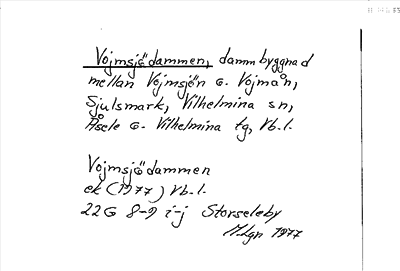 Vojmsjödammen, dammbyggnad
mellan Vojmsjön o. Vojmån,
Sjulsmark, Vilhelmina sn,
Åsele o. Vilhelmina tg, Vb. l.
Vojmsjödammen
ek (1977) Vb. l.
22G 8-9 i-j Storseleby
M.Lgn 1977